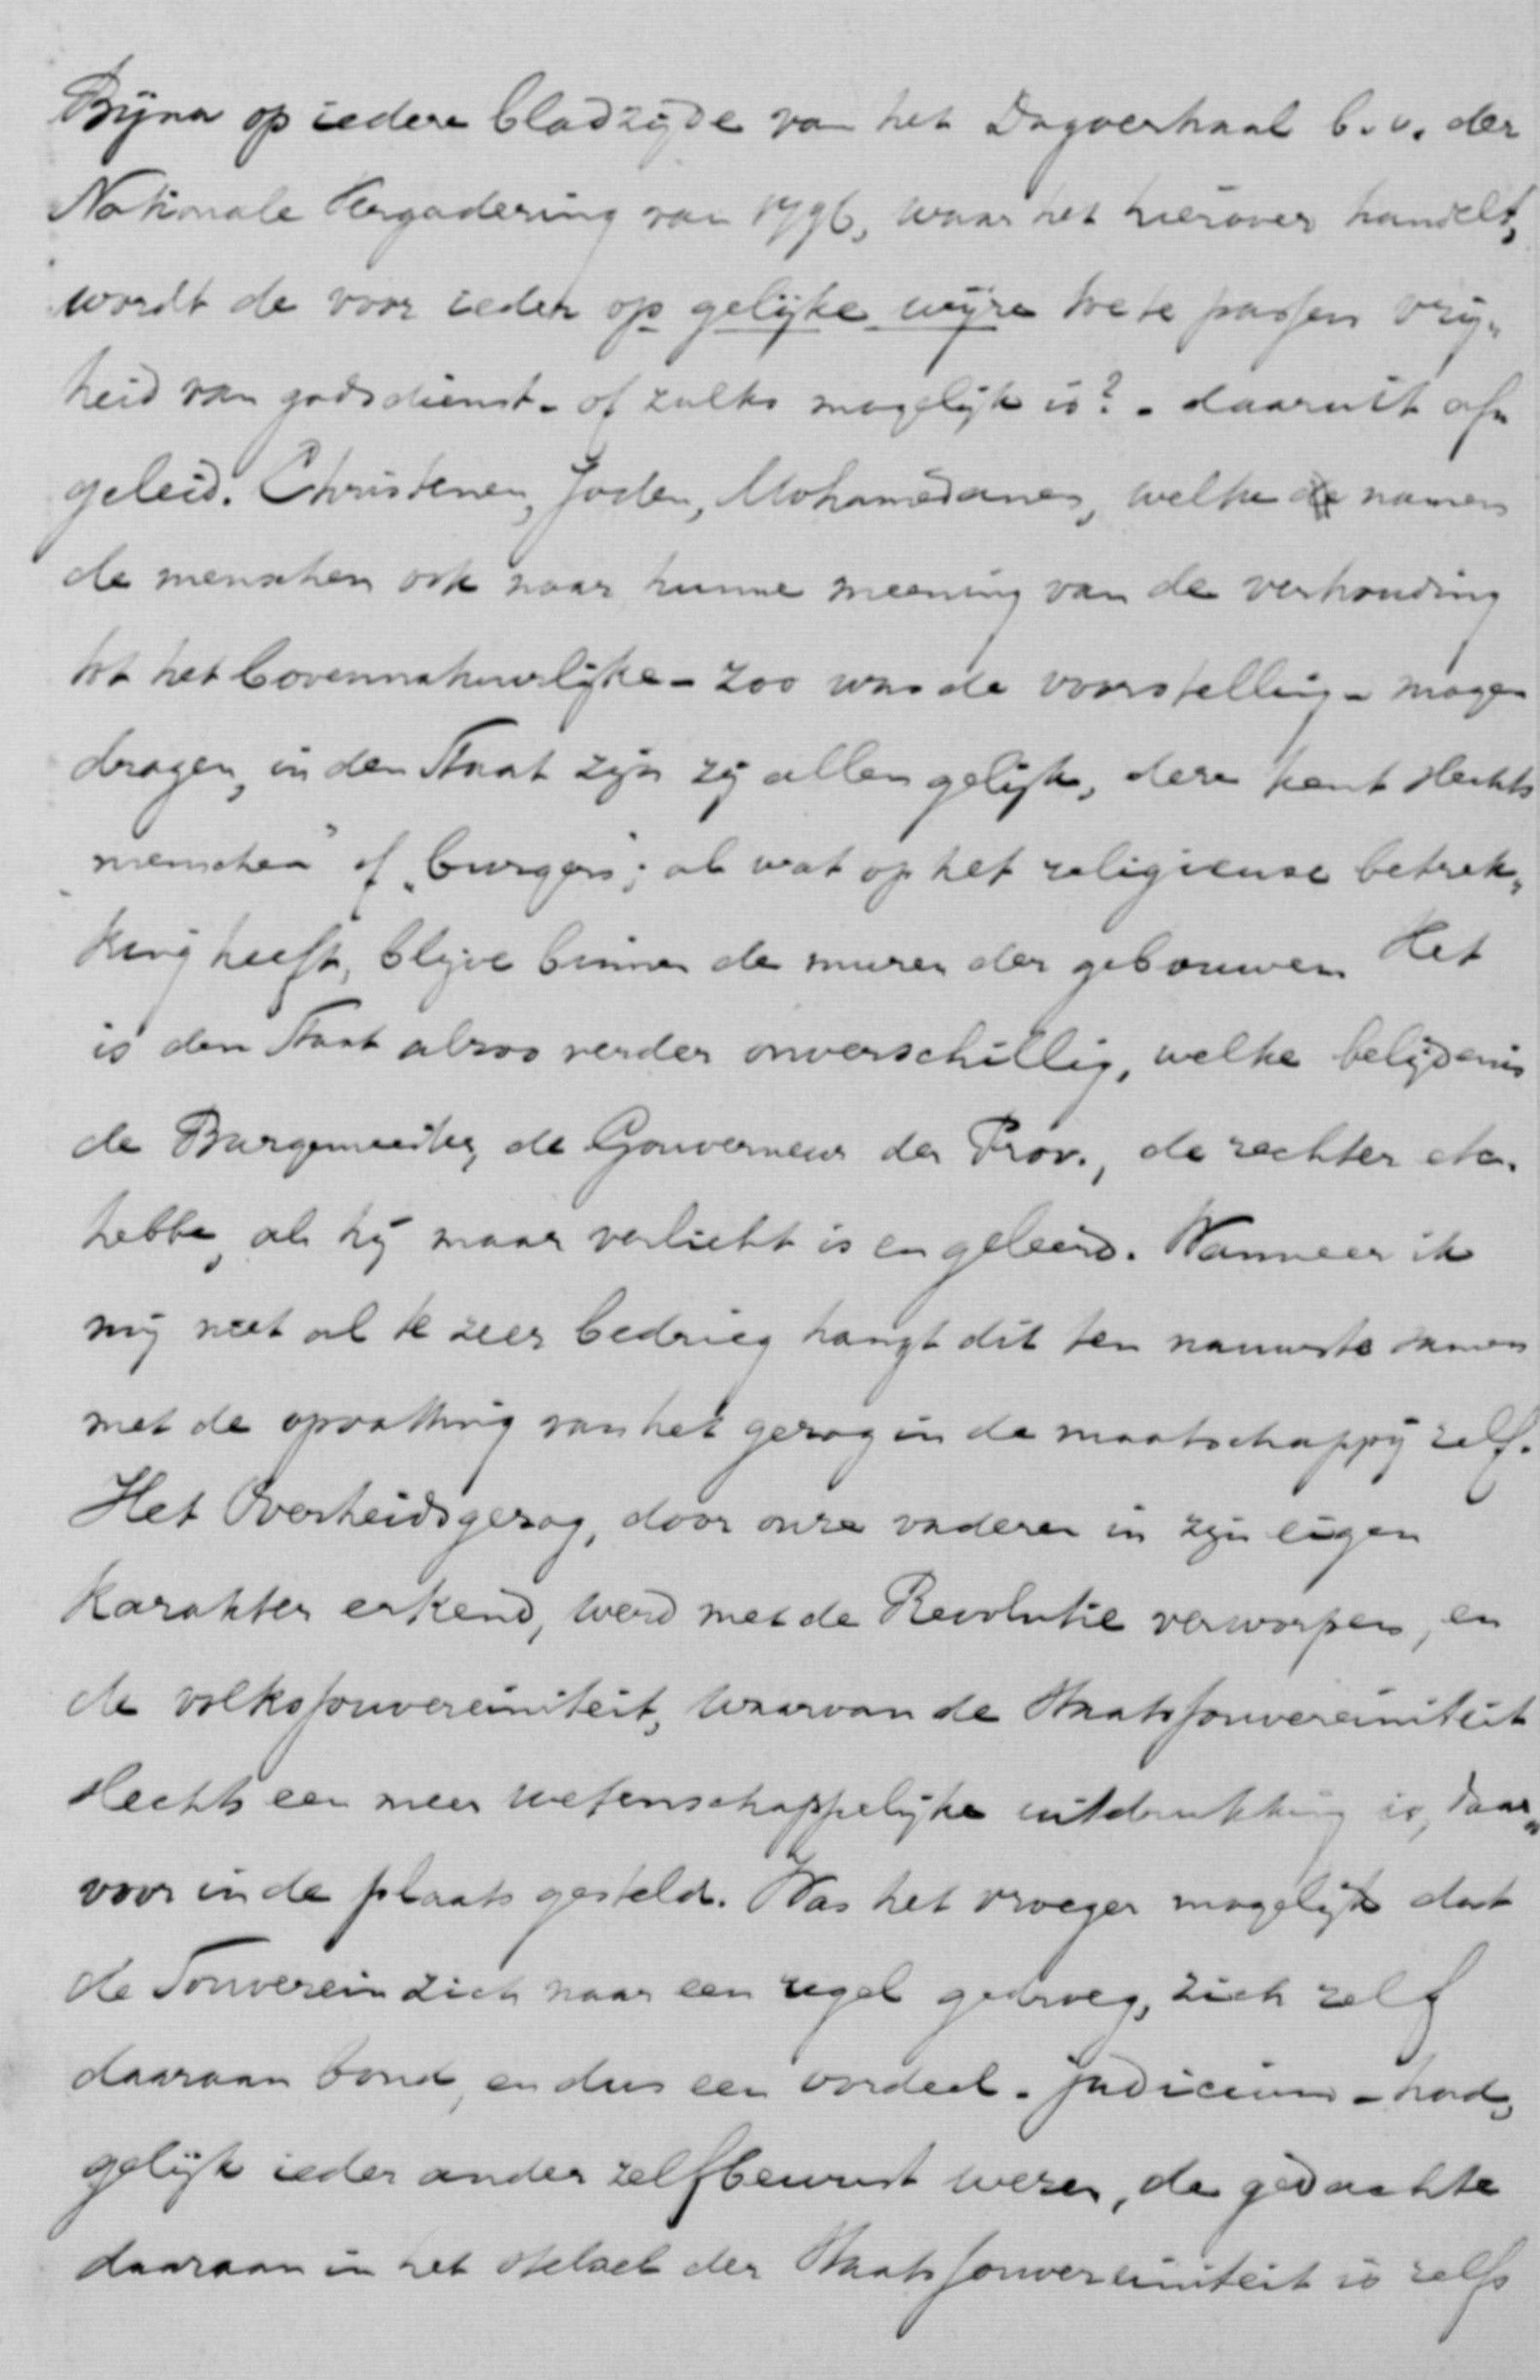 Bijna op iedere bladzijde van het Dagverhaal b.v. der
Nationale Vergadering van 1796, waar het hierover handelt,
wordt de voor ieder op gelijke wijze toe te passen vrij„
heid van godsdienst - of zulks mogelijk is? - daaruit af„
geleid. Christenen, Joden, Mohamedanen, welke namen
de menschen ook naar hunne meening van de verhouding
tot het bovennatuurlijke - zoo was de voorstelling - mogen
dragen, in den Staat zijn zij allen gelijk, deze kent slechts
„menschen" of „burgers"; al wat op het religieuse betrek„
king heeft, blijve binnen de muren der gebouwen. Het
is den Staat alzoo verder onverschillig, welke belijdenis
de Burgemeester, de Gouverneur der Prov., de rechter etc.
hebbe, als hij maar verlicht is en geleerd. Wanneer ik
mij niet al te zeer bedrieg hangt dit ten nauwste samen
met de opvatting van het gezag in de maatschappij zelf.
Het Overheidsgezag, door onze vaderen in zijn eigen
karakter erkend, werd met de Revolutie verworpen, en
de volkssouvereiniteit, waarvan de Staatssouvereiniteit
slechts een meer wetenschappelijke uitdrukking is, daar„
voor in de plaats gesteld. Was het vroeger mogelijk dat
de Souverein zich naar een regel gedroeg, zich zelf
daaraan bond, en dus een oordeel - judicium - had,
gelijk ieder ander zelfbewust wezen, de gedachte
daaraan in het stelsel der Staatssouvereiniteit is zelfs